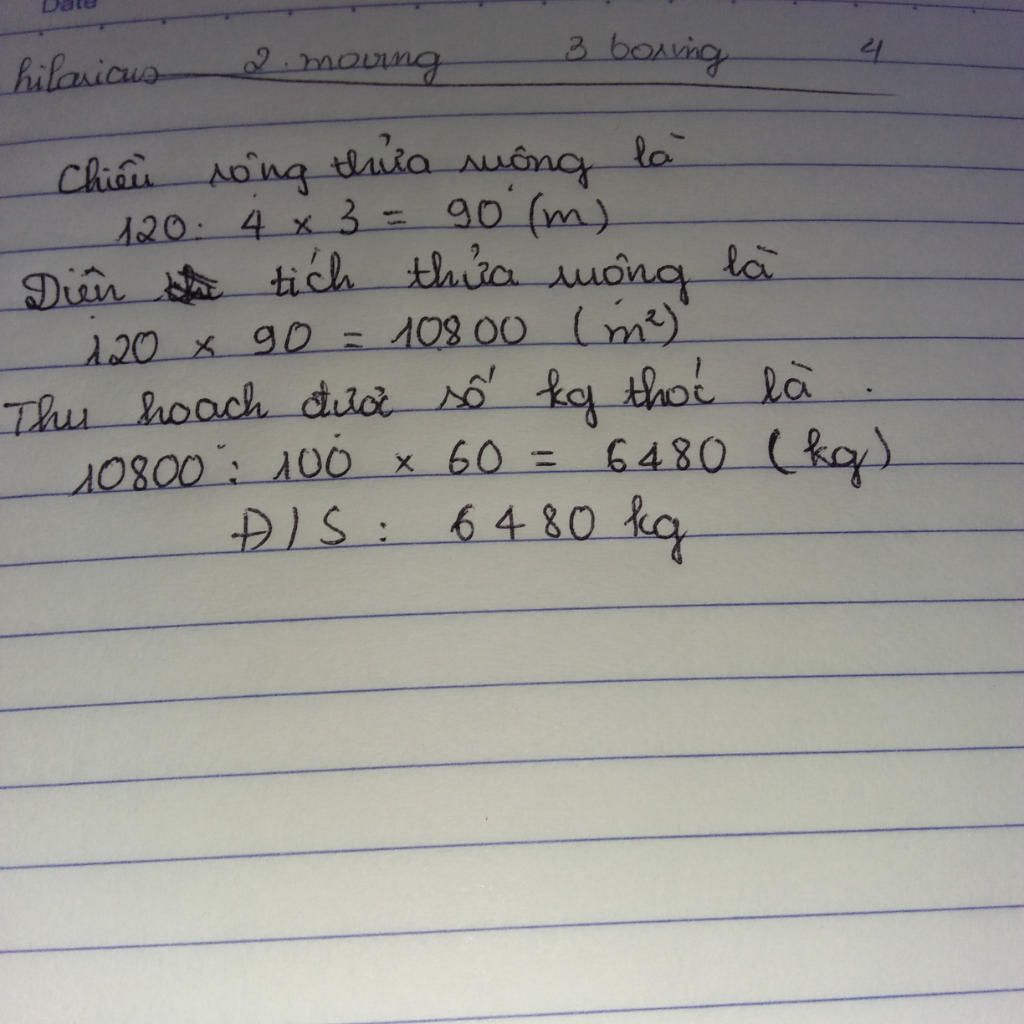 Date
hilarious 2. moving 3 boring 4
Chiều rộng thửa ruộng là
120 : 4 x 3 = 90 (m)
Diện tích thửa ruộng là
120 x 90 = 10800 (m²)
Thu hoạch được số kg thóc là.
10800 : 100 x 60 = 6480 (kg)
Đ/S : 6480 kg